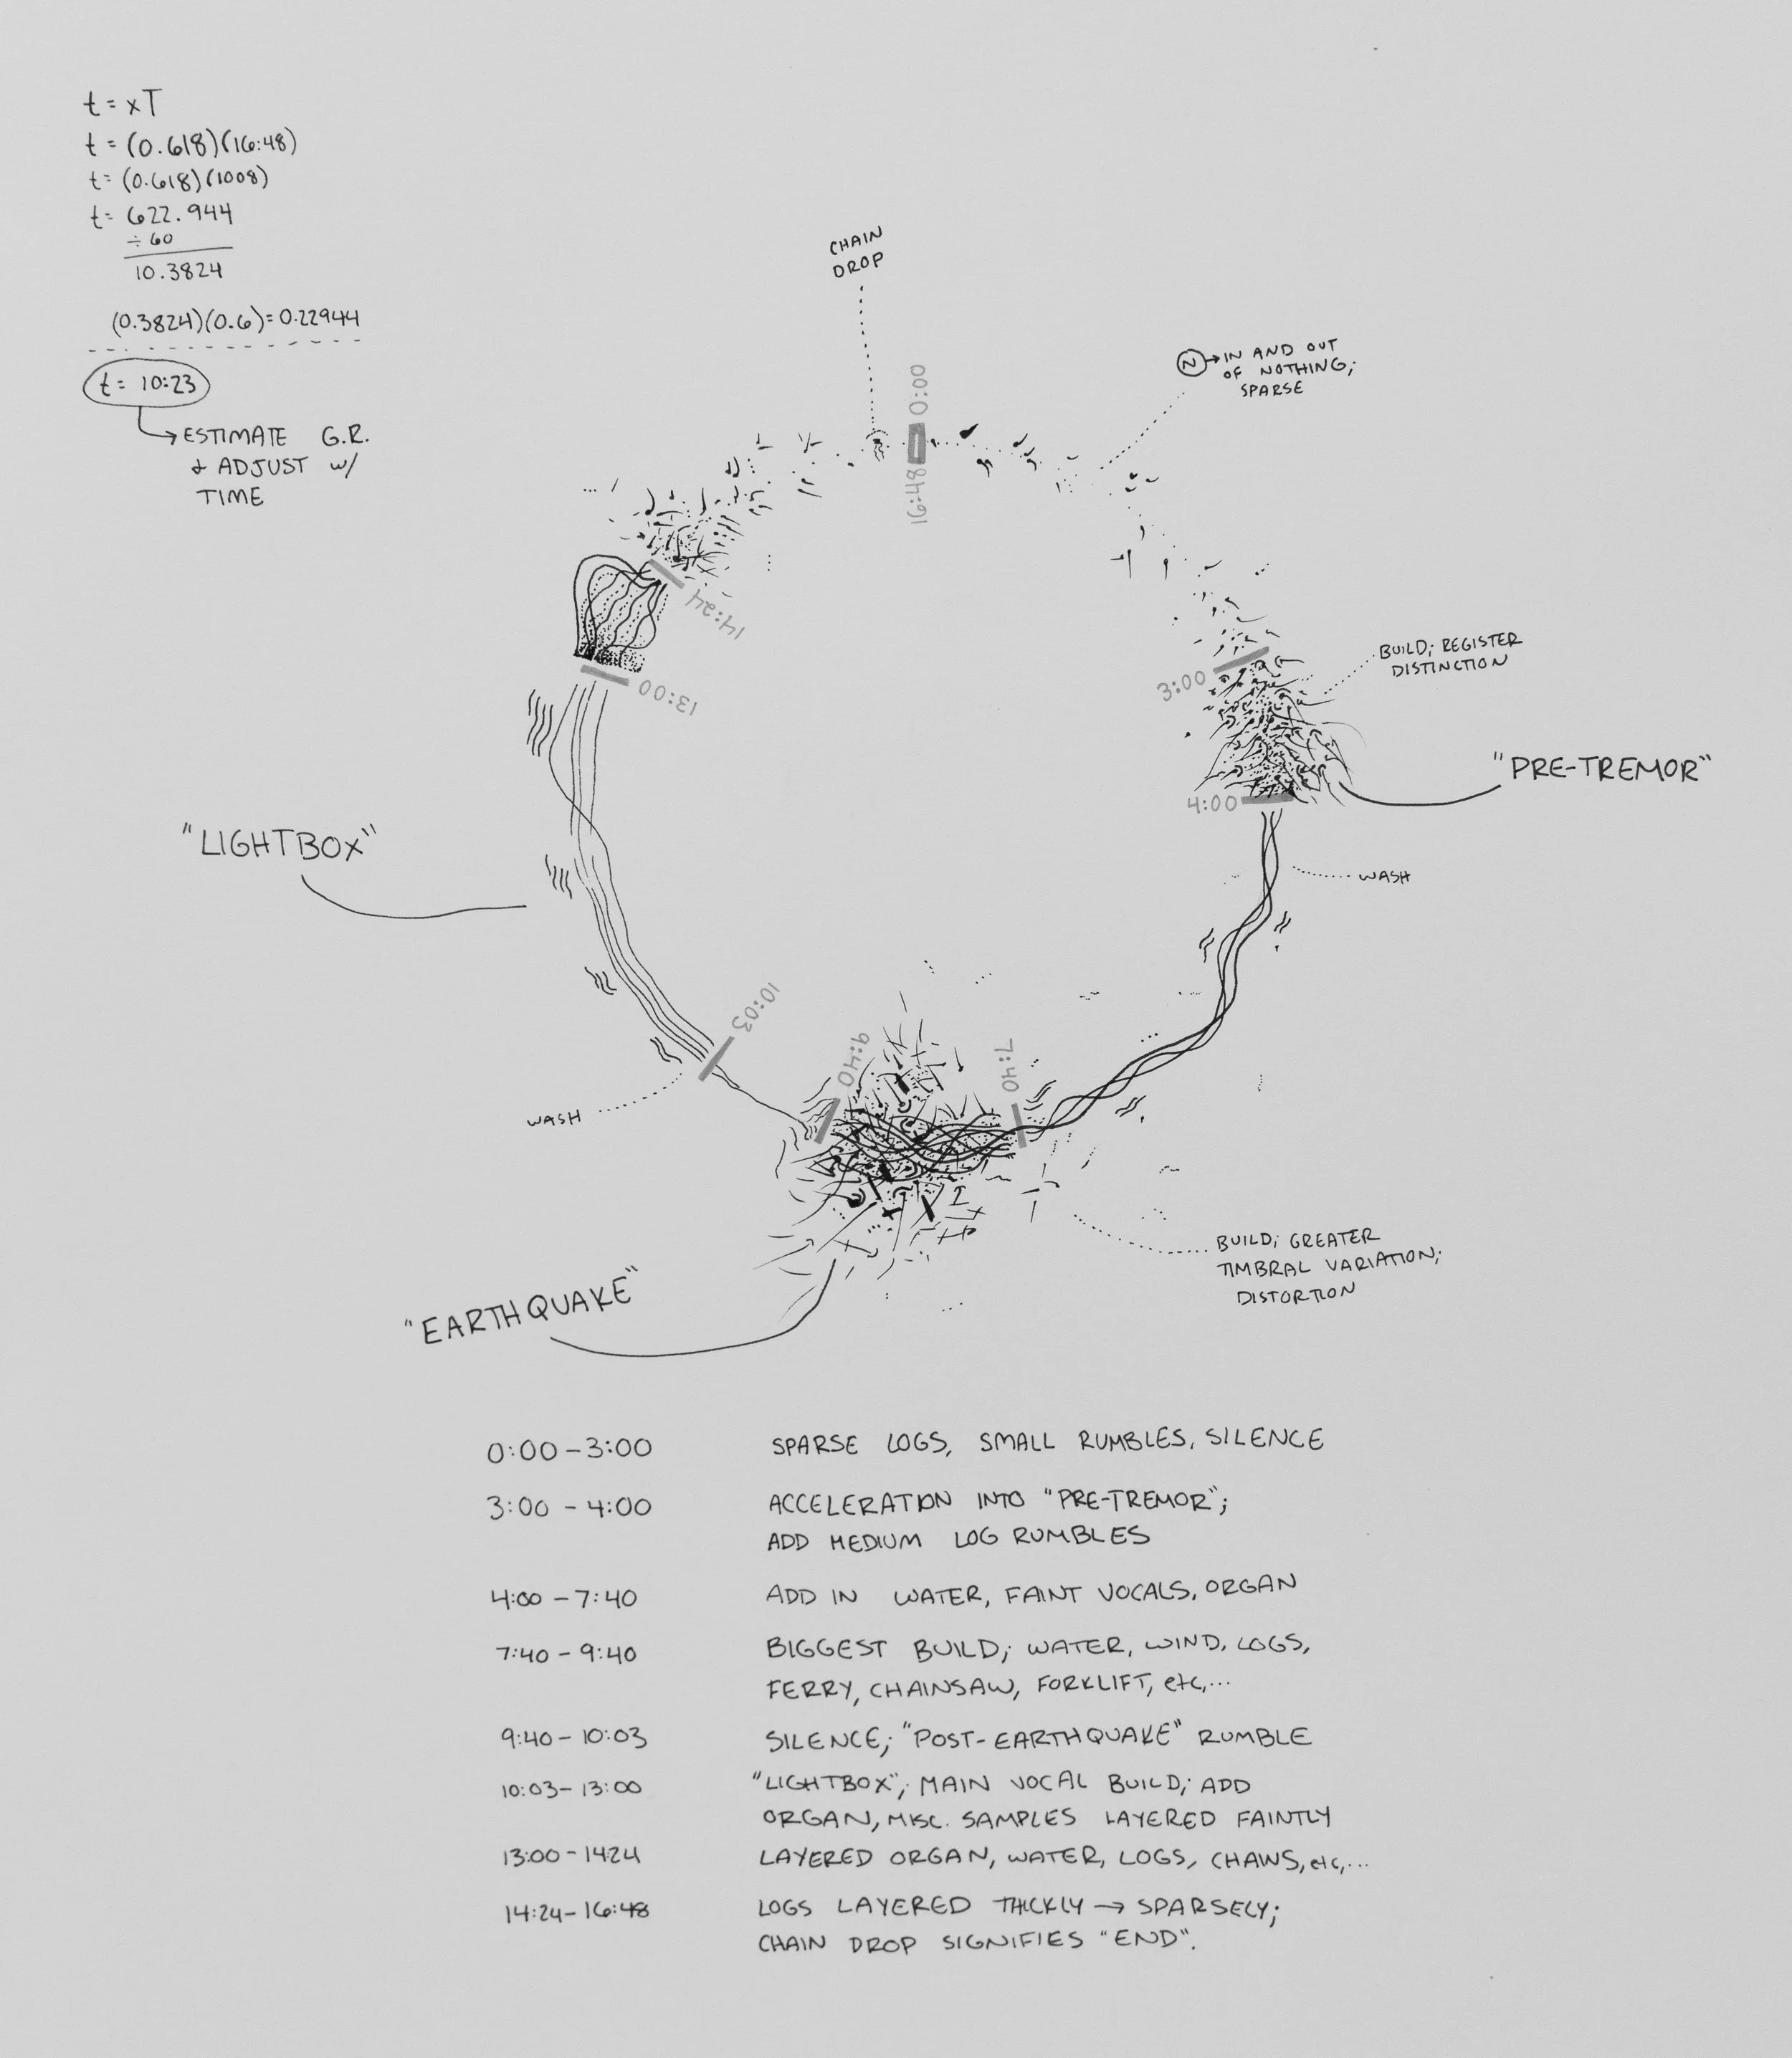 t = xT
t = (0.618)(16:48)
t = (0.618)(1008)
t = 622.944
÷ 60
10.3824
(0.3824)(0.6) = 0.22944
t = 10:23
→ ESTIMATE G.R.
& ADJUST w/
TIME
CHAIN
DROP
N → IN AND OUT
OF NOTHING;
SPARSE
0:00
16:48
14:24
13:00
BUILD; REGISTER
DISTINCTION
3:00
"PRE-TREMOR"
4:00
"LIGHTBOX"
WASH
10:03
9:40
7:40
WASH
BUILD; GREATER
TIMBRAL VARIATION;
DISTORTION
"EARTHQUAKE"
0:00 – 3:00 SPARSE LOGS, SMALL RUMBLES, SILENCE
3:00 – 4:00 ACCELERATION INTO "PRE-TREMOR";
ADD MEDIUM LOG RUMBLES
4:00 – 7:40 ADD IN WATER, FAINT VOCALS, ORGAN
7:40 – 9:40 BIGGEST BUILD; WATER, WIND, LOGS,
FERRY, CHAINSAW, FORKLIFT, etc,...
9:40 – 10:03 SILENCE; "POST-EARTHQUAKE" RUMBLE
10:03 – 13:00 "LIGHTBOX"; MAIN VOCAL BUILD; ADD
ORGAN, MISC. SAMPLES LAYERED FAINTLY
13:00 – 14:24 LAYERED ORGAN, WATER, LOGS, CHAINS, etc,...
14:24 – 16:48 LOGS LAYERED THICKLY → SPARSELY;
CHAIN DROP SIGNIFIES "END".